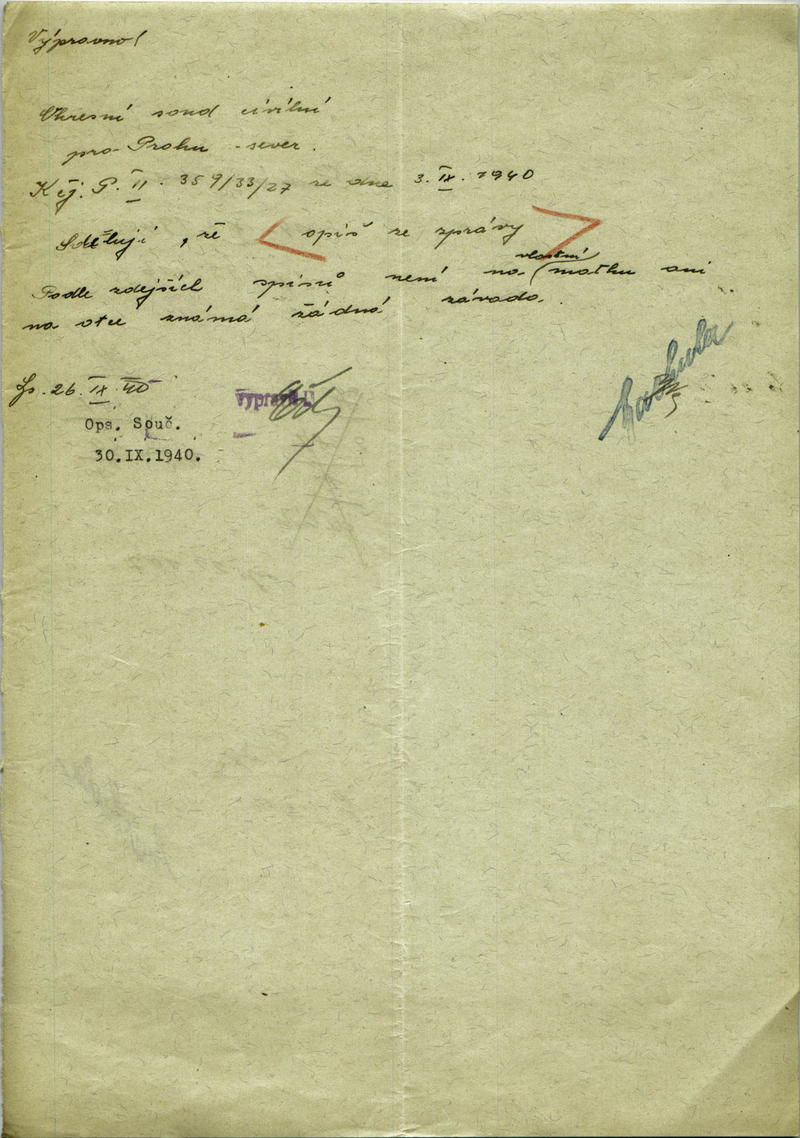 Výpravno!
Okresní soud civilní
pro Prahu - sever.
K čj. P. II. 359/33/27 ze dne 3. IX. 1940
Sděluji, že < opiš ze zprávy >
Podle zdejších spisů není na vlastní matku ani
na otce známá žádná závada.
26. IX. 40
Ops. Souč.
30.IX.1940.